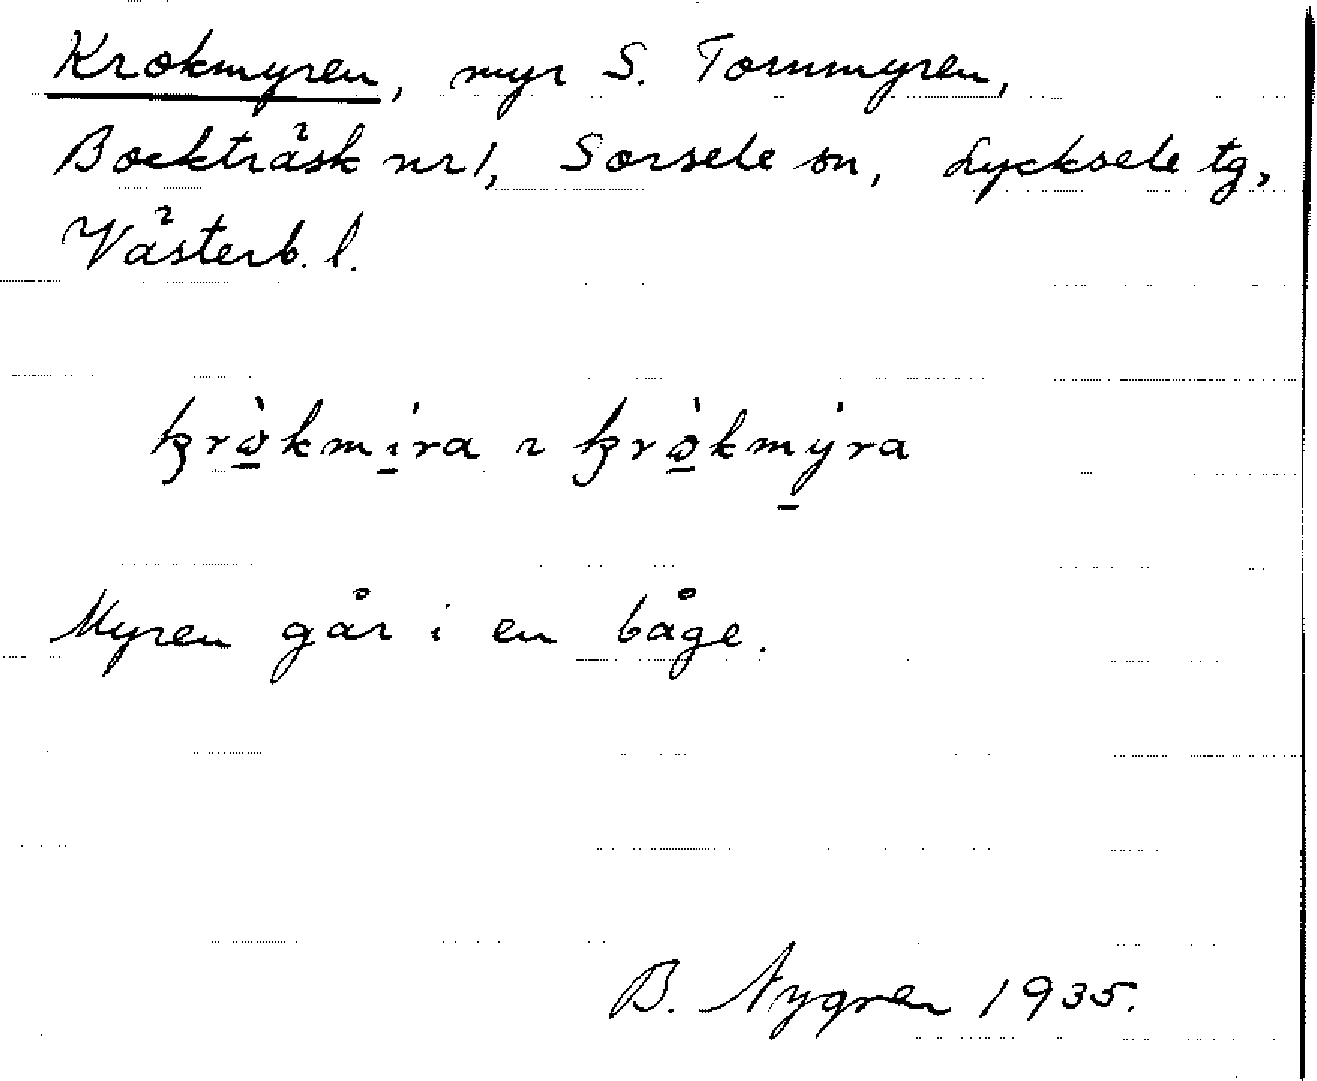 Krokmyren, myr S. Tommyren,
Bockträsk nr 1, Sorsele sn, Lycksele tg,
Västerb. l.
Myren går i en båge.
B. Nygren 1935.